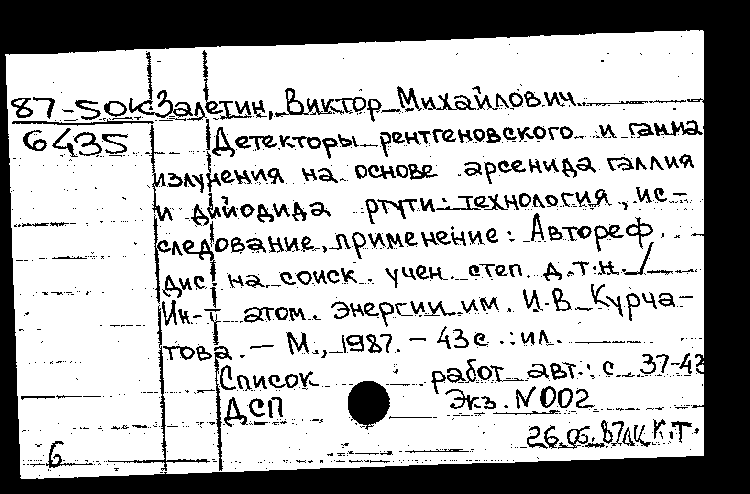 87-50К Залетин, Виктор Михайлович
6435 Детекторы рентгеновского и гамма
излучения на основе арсенида галлия
и дийодида ртути: технология, ис-
следование, применение: Автореф.
дис. на соиск. учен. степ. д.т.н. /
Ин-т атом. энергии им. И.В. Курча-
това. — М., 1987. — 43 с. : ил.
Список работ авт.: с. 37-43
ДСП Экз. N 002
26.05.87 К.Т.
6